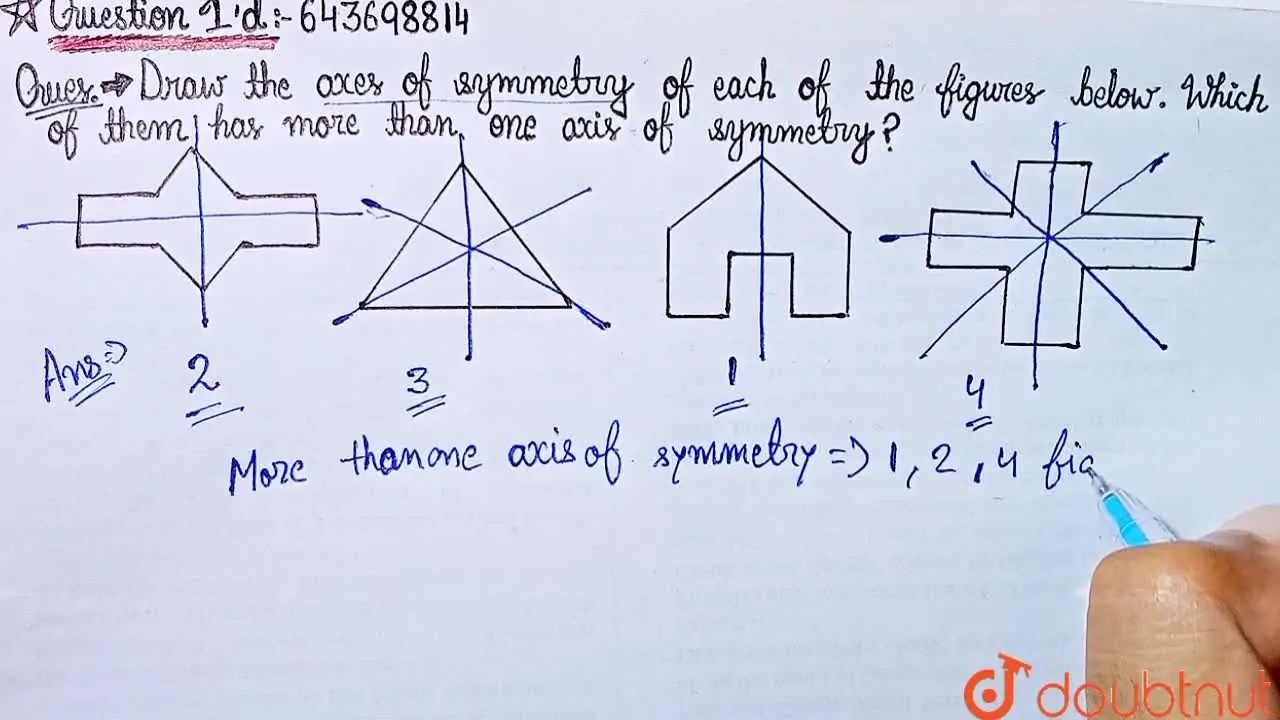 ☆ Question I'd:- 643698814
Ques. ⇒ Draw the axes of symmetry of each of the figures below. Which
of them has more than one axis of symmetry?
Ans ⇒ 2 3 1 4
More than one axis of symmetry ⇒ 1, 2, 4 fig
doubtnut